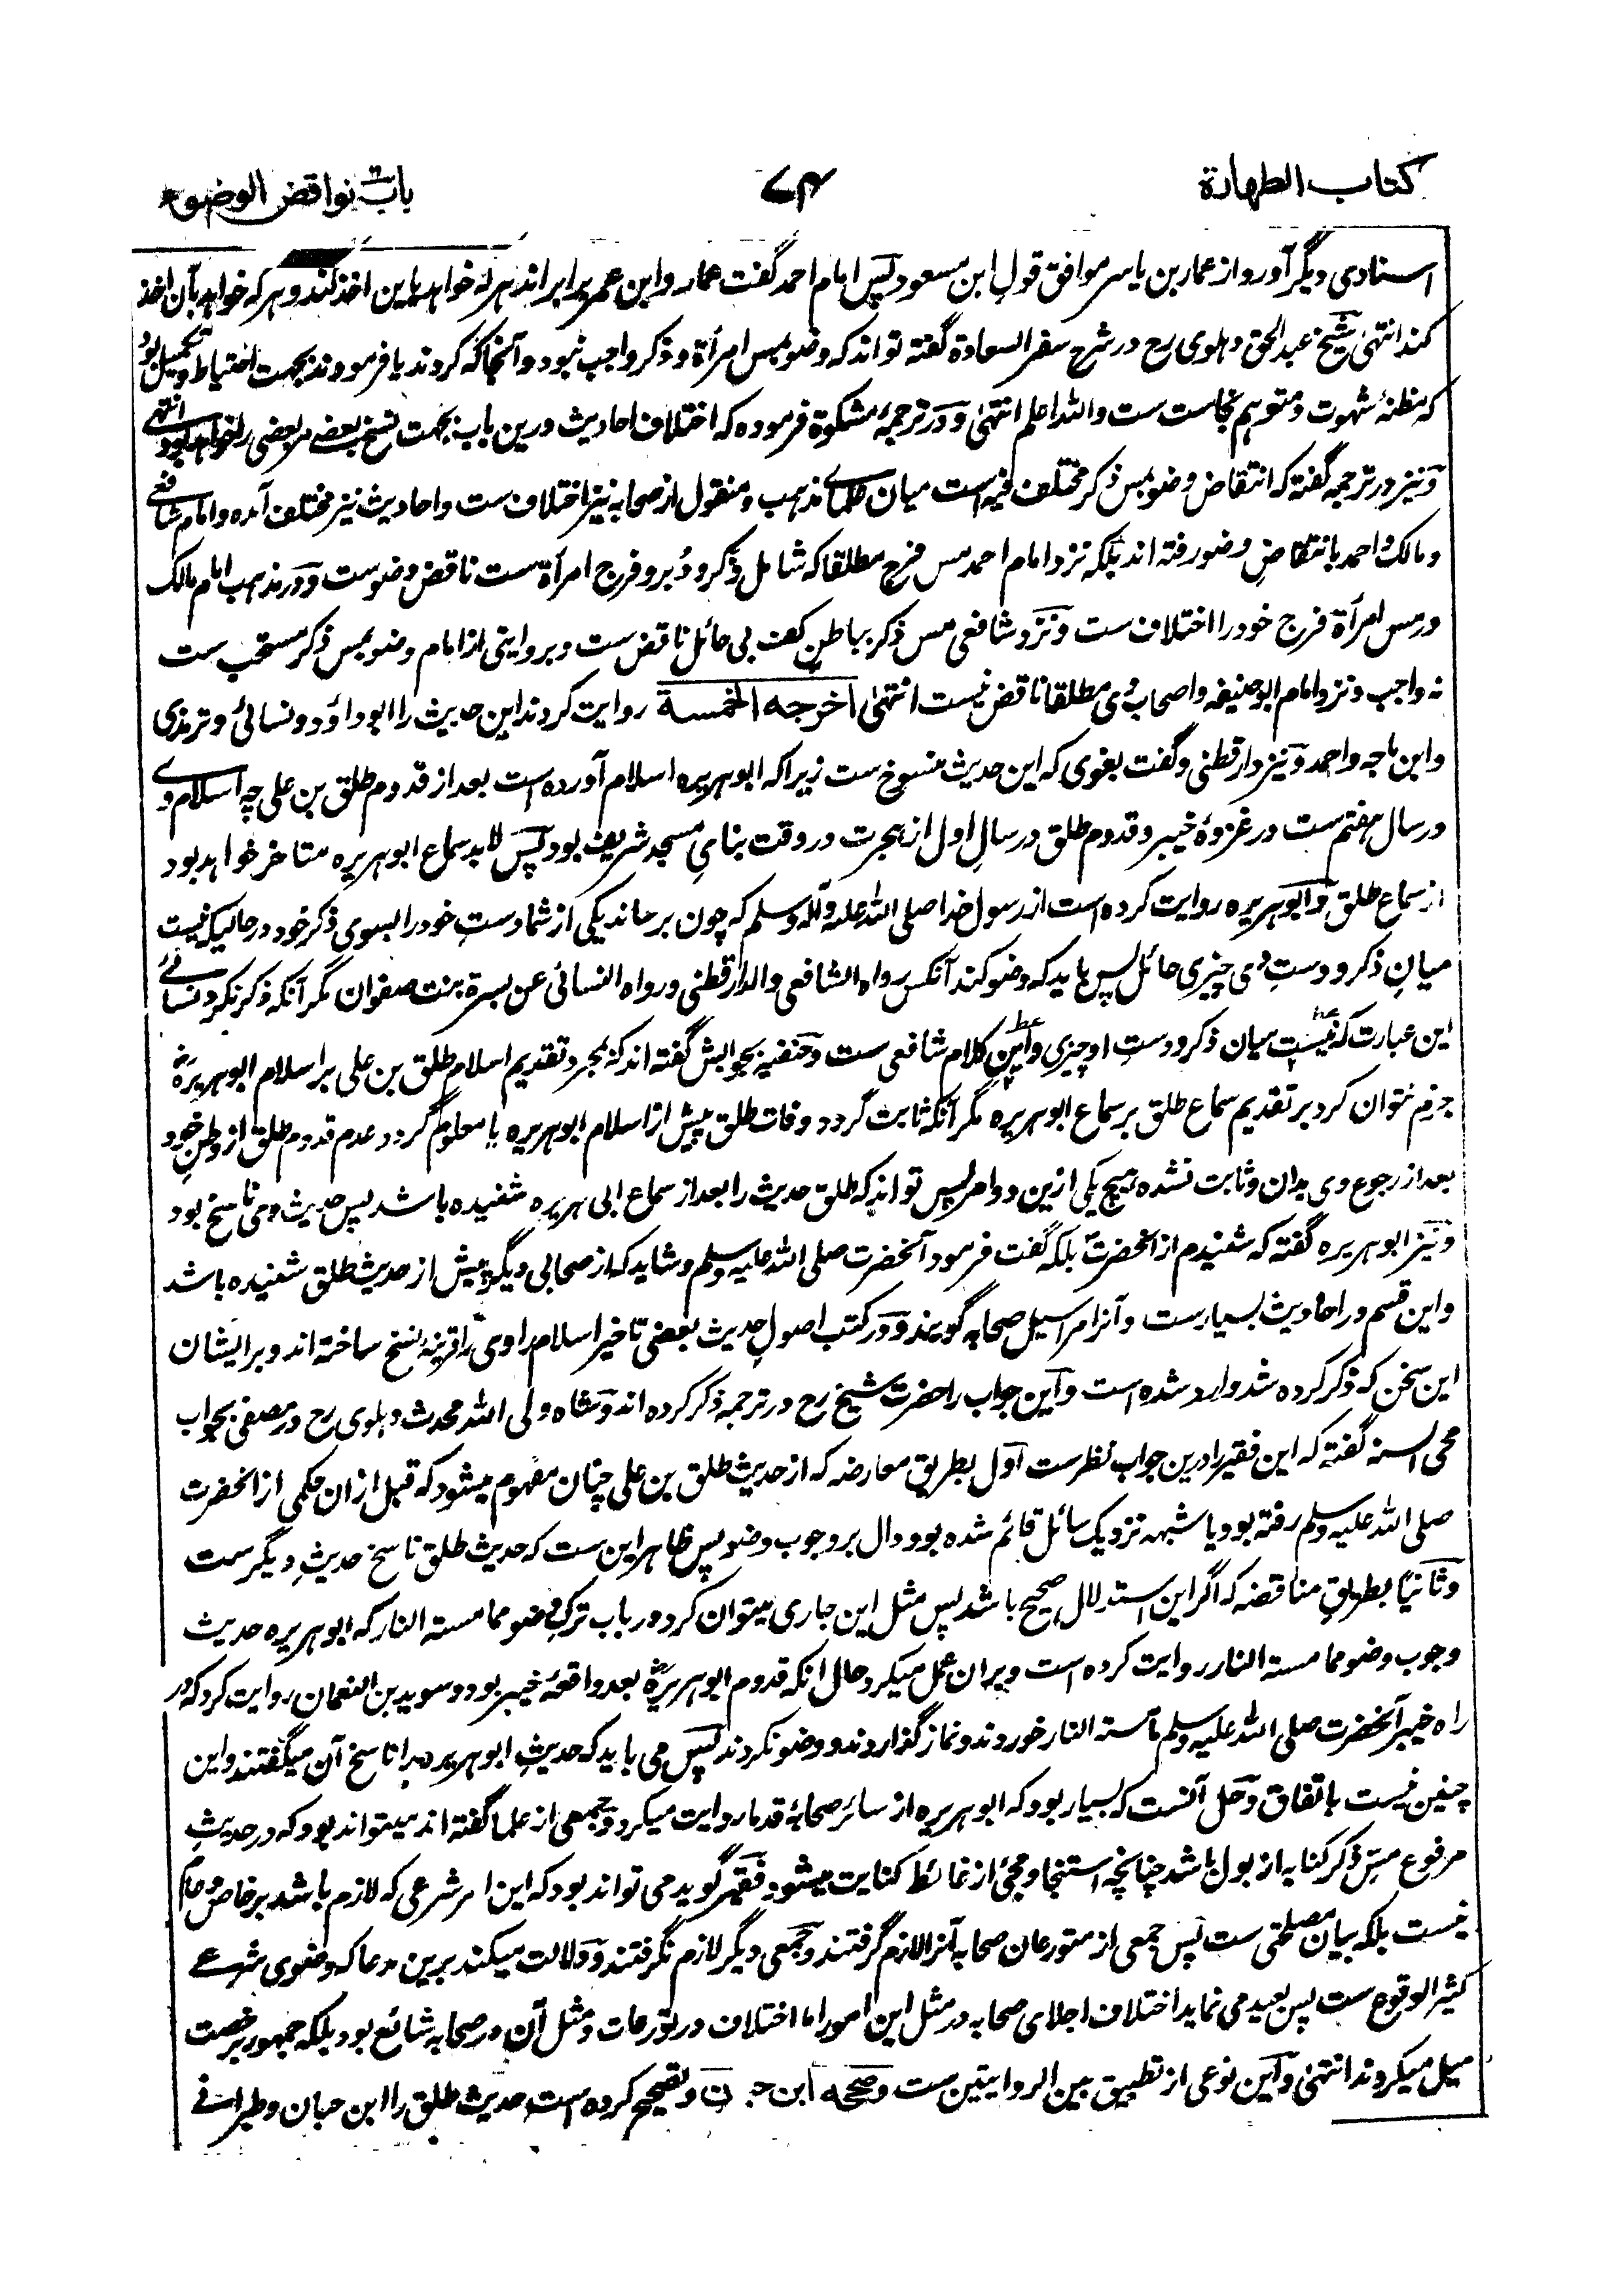 کتاب الطهارة
۷۴
باب نواقض الوضوء
اسنادی دیگر آورد از عمار بن یاسر موافق قول ابن مسعود پس امام احمد گفت عمار و ابن عمر برابر اند هر که خواهد باین اخذ کند و هر که خواهد بآن اخذ
کند انتهیٰ شیخ عبد الحق دهلوی رح در شرح سفر السعادة گفته تواند که وضو بمس امرأة و ذکر واجب نبود و آنجا که کردند یا فرمودند بجهت احتیاط و تکمیل بود
که مظنۂ شهوت و متوهم نجاست ست والله اعلم انتهیٰ و در ترجمۂ مشکوة فرموده که اختلاف احادیث درین باب بجهت نسخ بعضے مر بعضی را خواهد بود انتهی
و نیز در ترجمه گفته که انتقاض وضو بمس ذکر مختلف فیه است میان علمای مذهب و منقول از صحابه نیز اختلاف ست و احادیث نیز مختلف آمده و امام شافعی
و مالک و احمد بانتقاض وضو رفته اند بلکه نزد امام احمد مس فرج مطلقا که شامل ذکر و دُبر و فرج امرأة ست ناقض وضوست و در مذهب امام مالک
در مس امرأة فرج خود را اختلاف ست و نزد شافعی مس ذکر بباطن کف بی حائل ناقض ست و بروایتی از امام وضو بمس ذکر مستحب ست
نه واجب و نزد امام ابو حنیفه و اصحاب وی مطلقا ناقض نیست انتهیٰ اخرجه الخمسة روایت کردند این حدیث را ابو داؤد و نسائی و ترمذی
و ابن ماجه و احمد و نیز دارقطنی و گفت بغوی که این حدیث منسوخ ست زیرا که ابوهریره اسلام آورده است بعد از قدوم طلق بن علی چه اسلام وے
در سال هفتم ست در غزوۂ خیبر و قدوم طلق در سالِ اول از هجرت در وقت بنایِ مسجد شریف بود پس لابد سماع ابوهریره متاخر خواهد بود
از سماع طلق و ابوهریره روایت کرده است از رسول خدا صلی الله علیه وآله وسلم که چون برساند یکی از شما دستِ خود را بسوی ذکر خود در حالیکه نیست
میانِ ذکر و دستِ وی چیزی حائل پس باید که وضو کند آنکس رواه الشافعی والدارقطنی ورواه النسائی عن بسرة بنت صفوان مگر آنکه ذکر نکرد نسائے
این عبارت که نیست میان ذکر و دستِ او چیزی و این کلام شافعی ست و حنفیه بجوابش گفته اند که بمجرد تقدیم اسلام طلق بن علی بر اسلام ابوهریره
جزم نتوان کرد بر تقدیم سماع طلق بر سماع ابوهریره مگر آنکه ثابت گردد وفات طلق پیش از اسلام ابوهریره یا معلوم گردد عدم قدوم طلق از وطن خود
بعد از رجوع وی بدان و ثابت نشده هیچ یکی ازین دو امر پس تواند که طلق حدیث را بعد از سماع ابی هریره شنیده باشد پس حدیث وی ناسخ بود
و نیز ابوهریره گفته که شنیدم از آنحضرت بلکه گفت فرمود آنحضرت صلی الله علیه وسلم و شاید که از صحابی دیگر پیش از حدیث طلق شنیده باشد
و این قسم در احادیث بسیارست و آنرا مراسیل صحابه گویند و در کتب اصولِ حدیث بعضی تاخیر اسلام راوی را قرینۂ نسخ ساخته اند و بر ایشان
این سخن که ذکر کرده شد وارد شده است و این جواب را حضرت شیخ رح در ترجمه ذکر کرده اند و شاه ولی الله محدث دهلوی رح در مصفی بجواب
محی السنه گفته که این فقیر را درین جواب نظرست اول بطریق معارضه که از حدیث طلق بن علی چنان مفهوم میشود که قبل ازان حکمی از آنحضرت
صلی الله علیه وسلم رفته بود یا شبهه نزدیک سائل قائم شده بود دال بر وجوب وضو پس ظاهر این ست که حدیث طلق ناسخ حدیثِ دیگر ست
و ثانیًا بطریق مناقضه که اگر این استدلال صحیح باشد پس مثل این جاری میتوان کرد در باب ترکِ وضو مما مسته النار که ابوهریره حدیث
وجوب وضو مما مسته النار روایت کرده است و بران عمل میکرد حال انکه قدوم ابوهریره بعد واقعۂ خیبر بود و سوید بن النعمان روایت کرد که در
راه خیبر آنحضرت صلی الله علیه وسلم ما مسته النار خوردند و نماز گذاردند و وضو نکردند پس می باید که حدیثِ ابوهریره را ناسخ آن میگفتند و این
چنین نیست باتفاق و حل آنست که بسیار بود که ابوهریره از سائر صحابۂ قدما روایت میکرد و جمعی از علما گفته اند میتواند بود که در حدیثِ
مرفوع مسِّ ذکر کنایه از بول باشد چنانچه استنجا و مجئ از غائط کنایت میشود فقیر گوید می تواند بود که این امر شرعی که لازم باشد بر خاص و عام
نیست بلکه بیان مصلحتی ست پس جمعی از متورعان صحابه آنرا لازم گرفتند و جمعی دیگر لازم نگرفتند و دلالت میکند برین مدعا که وضوی شرعے
کثیر الوقوع ست پس بعید می نماید اختلاف اجلای صحابه در مثل این امور اما اختلاف در تورعات و مثل آن در صحابه شائع بود بلکه جمهور برخصت
میل میکردند انتهیٰ و این نوعی از تطبیق بین الروایتین ست وصححه ابن حبان و تصحیح کرده است حدیث طلق را ابن حبان و طبرانی